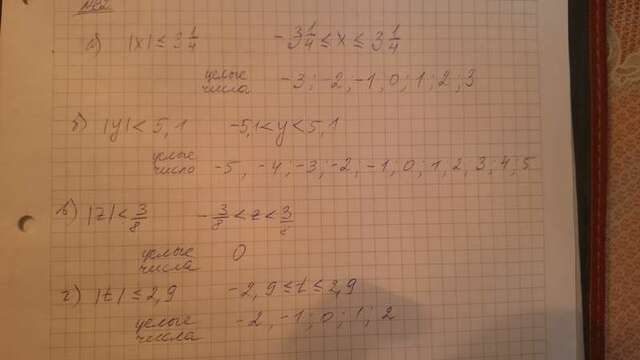 а) |x| ≤ 3 1/4 -3 1/4 ≤ x ≤ 3 1/4
целые числа -3; -2, -1, 0; 1; 2; 3
б) |y| < 5,1 -5,1 < y < 5,1
целые числа -5, -4; -3; -2, -1; 0; 1, 2, 3; 4; 5
в) |z| < 3/8 -3/8 < z < 3/8
целые числа 0
г) |t| ≤ 2,9 -2,9 ≤ t ≤ 2,9
целые числа -2, -1; 0; 1; 2